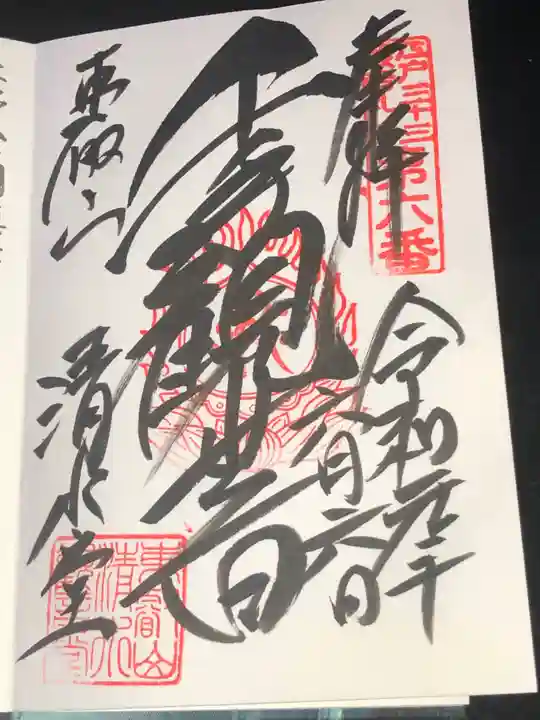 奉拝
江戸三十三第六番
令和元年
六月六日
千手観世音
東叡山
清水堂
東叡山
清水
観音堂